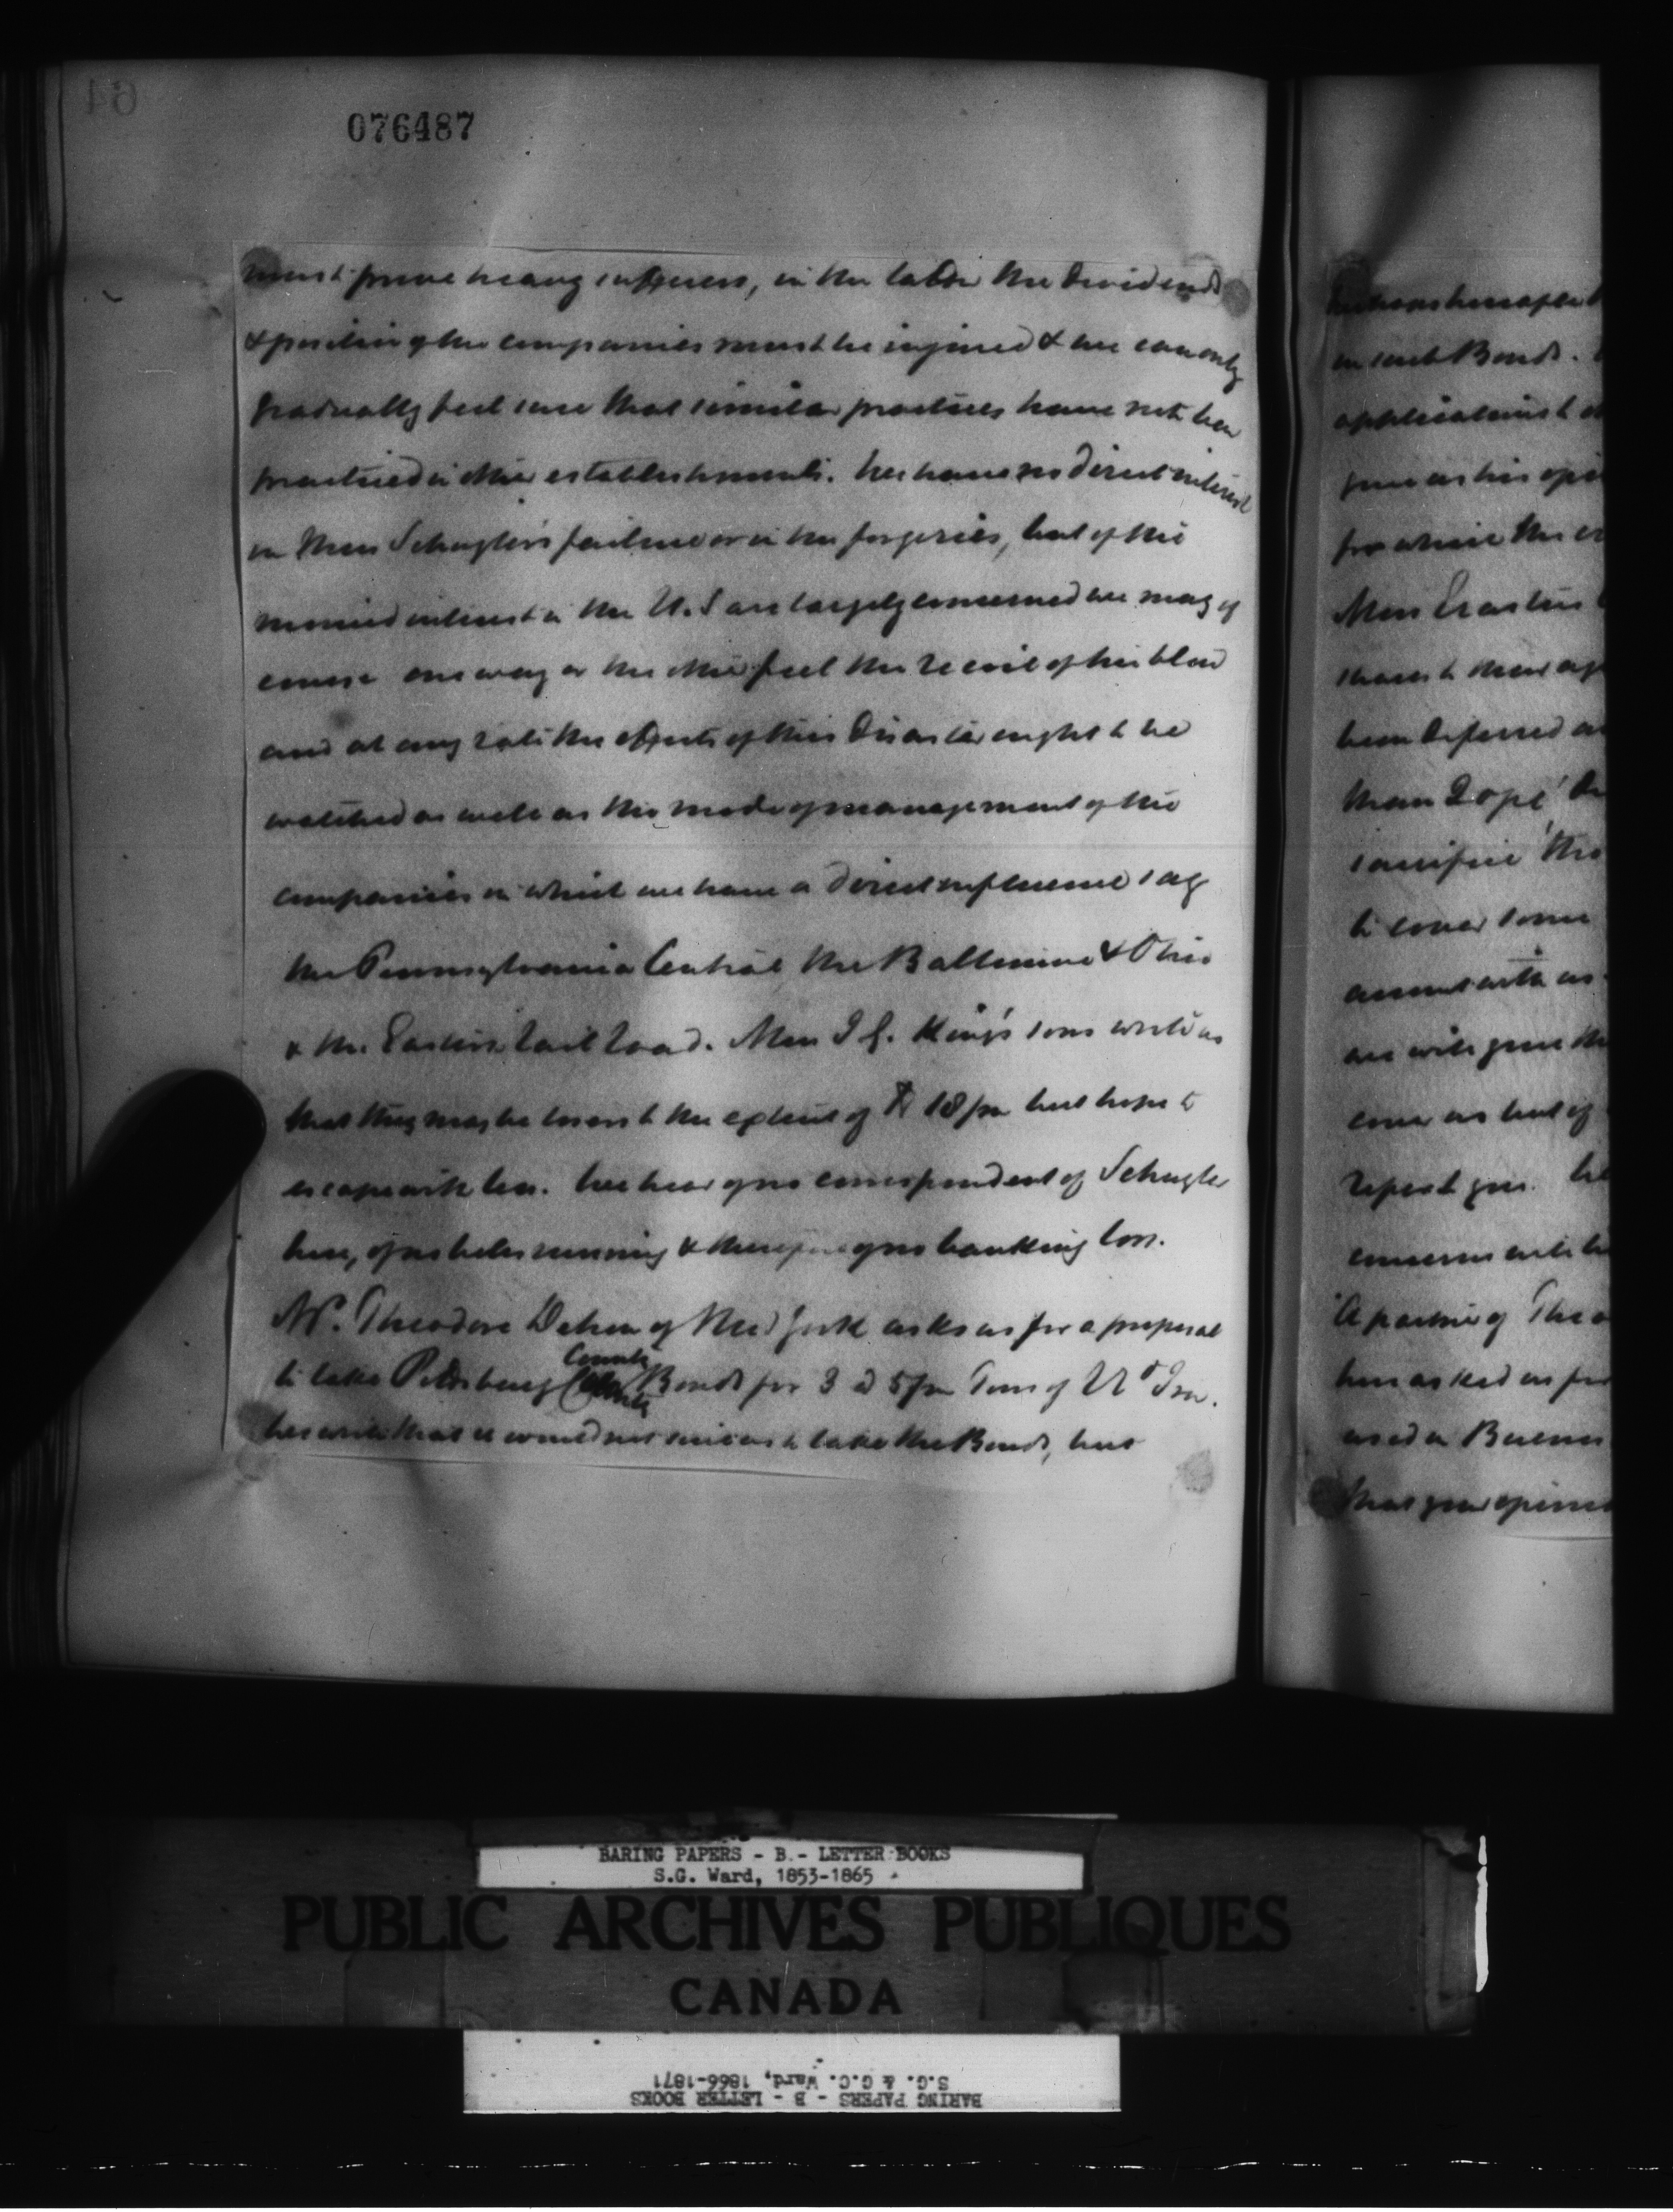 076487
must prove heavy sufferers, in the latter the dividends
& position of the companies must be injured & we can only
gradually feel sure that similar practices have not been
practised in other establishments. We have no direct interest
in Mess Schuyler's failure or in the forgeries, but if the
monied interest in the U.S are largely concerned we may of
course one way or the other feel the recoil of the blow
and at any rate the effects of this disaster ought to be
watched as well as the mode of management of the
companies in which we have a direct influence say
the Pennsylvania Central, the Baltimore & Ohio
& the Eastern Rail Road. Mess J G. King's sons write us
that they may be losers to the extent of 18/m but hope to
escape with less. We hear of no correspondent of Schuyler
here, of no bills running & therefore of no banking loss.
Mr. Theodore Dehon of New York asks us for a proposal
County
to take Petersburg Bonds for 3 @ 5/m Tons of Rd Iron.
We write that it would not suit us to take the Bonds, but
in such Bonds.
applications to
Mess Erastus
been deferred
than Dope'
sacrifice the
to cover some
account with us
we will give the
repeat you.
concerns with
A partner of
him asked us for
used in Buenos
that your opinion
BARING PAPERS - B - LETTER BOOKS
S.G. Ward, 1853-1865
PUBLIC ARCHIVES PUBLIQUES
CANADA
BARING PAPERS - B - LETTER BOOKS
S.G. & G.C. Ward, 1866-1871